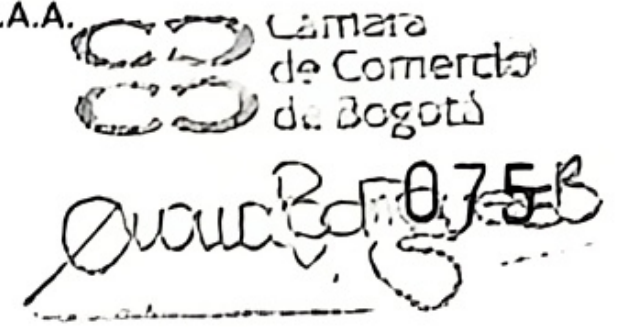 .A.A.
Cámara
de Comercio
de Bogotá
075